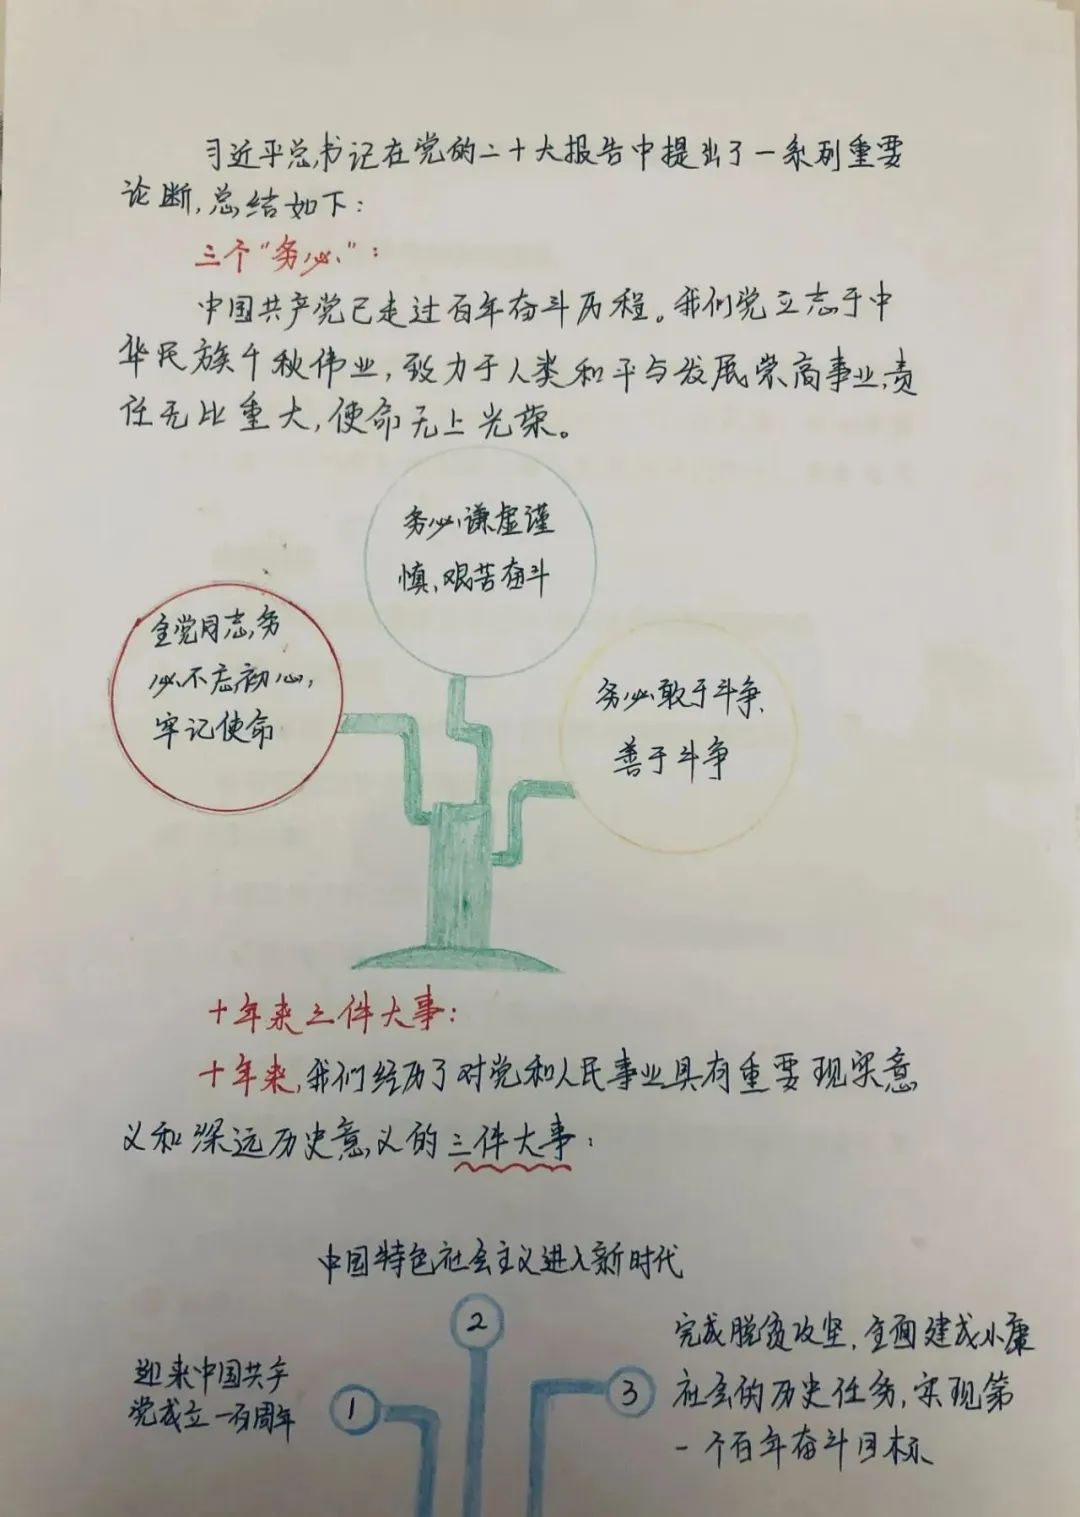 习近平总书记在党的二十大报告中提出了一系列重要
论断,总结如下:
三个“务必”:
中国共产党已走过百年奋斗历程。我们党立志于中
华民族千秋伟业,致力于人类和平与发展崇高事业,责
任无比重大,使命无上光荣。
务必谦虚谨
慎、艰苦奋斗
全党同志务
必不忘初心,
牢记使命
务必敢于斗争、
善于斗争
十年来三件大事:
十年来,我们经历了对党和人民事业具有重要现实意
义和深远历史意义的三件大事:
中国特色社会主义进入新时代
2
迎来中国共产
党成立一百周年
1
3
完成脱贫攻坚、全面建成小康
社会的历史任务,实现第
一个百年奋斗目标